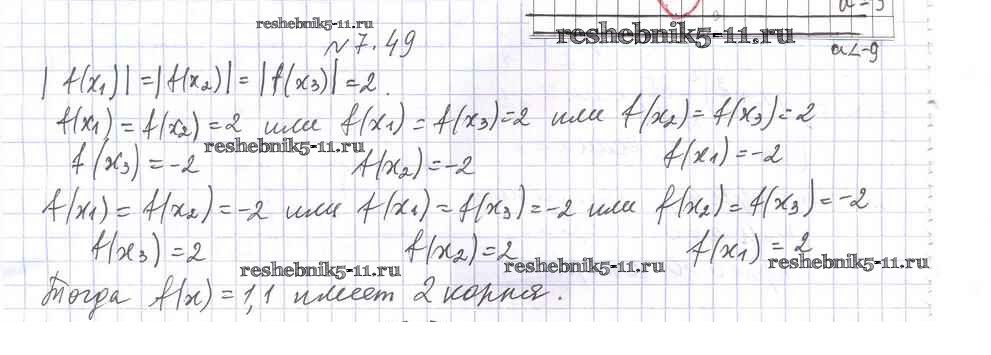 reshebnik5-11.ru
№ 7.49
a = -9
reshebnik5-11.ru
a < -9
|f(x₁)| = |f(x₂)| = |f(x₃)| = 2.
f(x₁) = f(x₂) = 2 или f(x₁) = f(x₃) = 2 или f(x₂) = f(x₃) = 2
reshebnik5-11.ru
f(x₃) = -2 f(x₂) = -2 f(x₁) = -2
f(x₁) = f(x₂) = -2 или f(x₁) = f(x₃) = -2 или f(x₂) = f(x₃) = -2
f(x₃) = 2 f(x₂) = 2 f(x₁) = 2
reshebnik5-11.ru reshebnik5-11.ru reshebnik5-11.ru
Тогда f(x) = 1,1 имеет 2 корня.